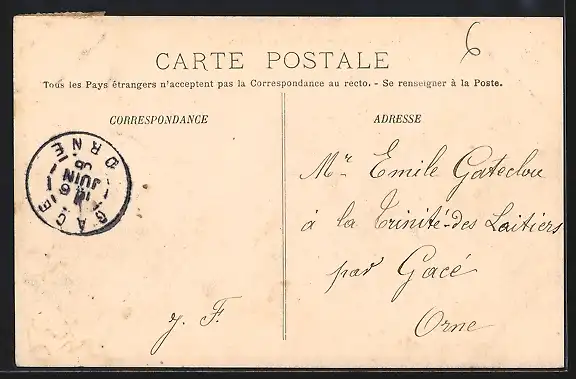 6
CARTE POSTALE
Tous les Pays étrangers n'acceptent pas la Correspondance au recto. - Se renseigner à la Poste.
CORRESPONDANCE
ADRESSE
GACE
ORNE
JUIN
06
Mr Emile Gateclou
à la Trinité-des Laitiers
par Gacé
Orne
J. F.